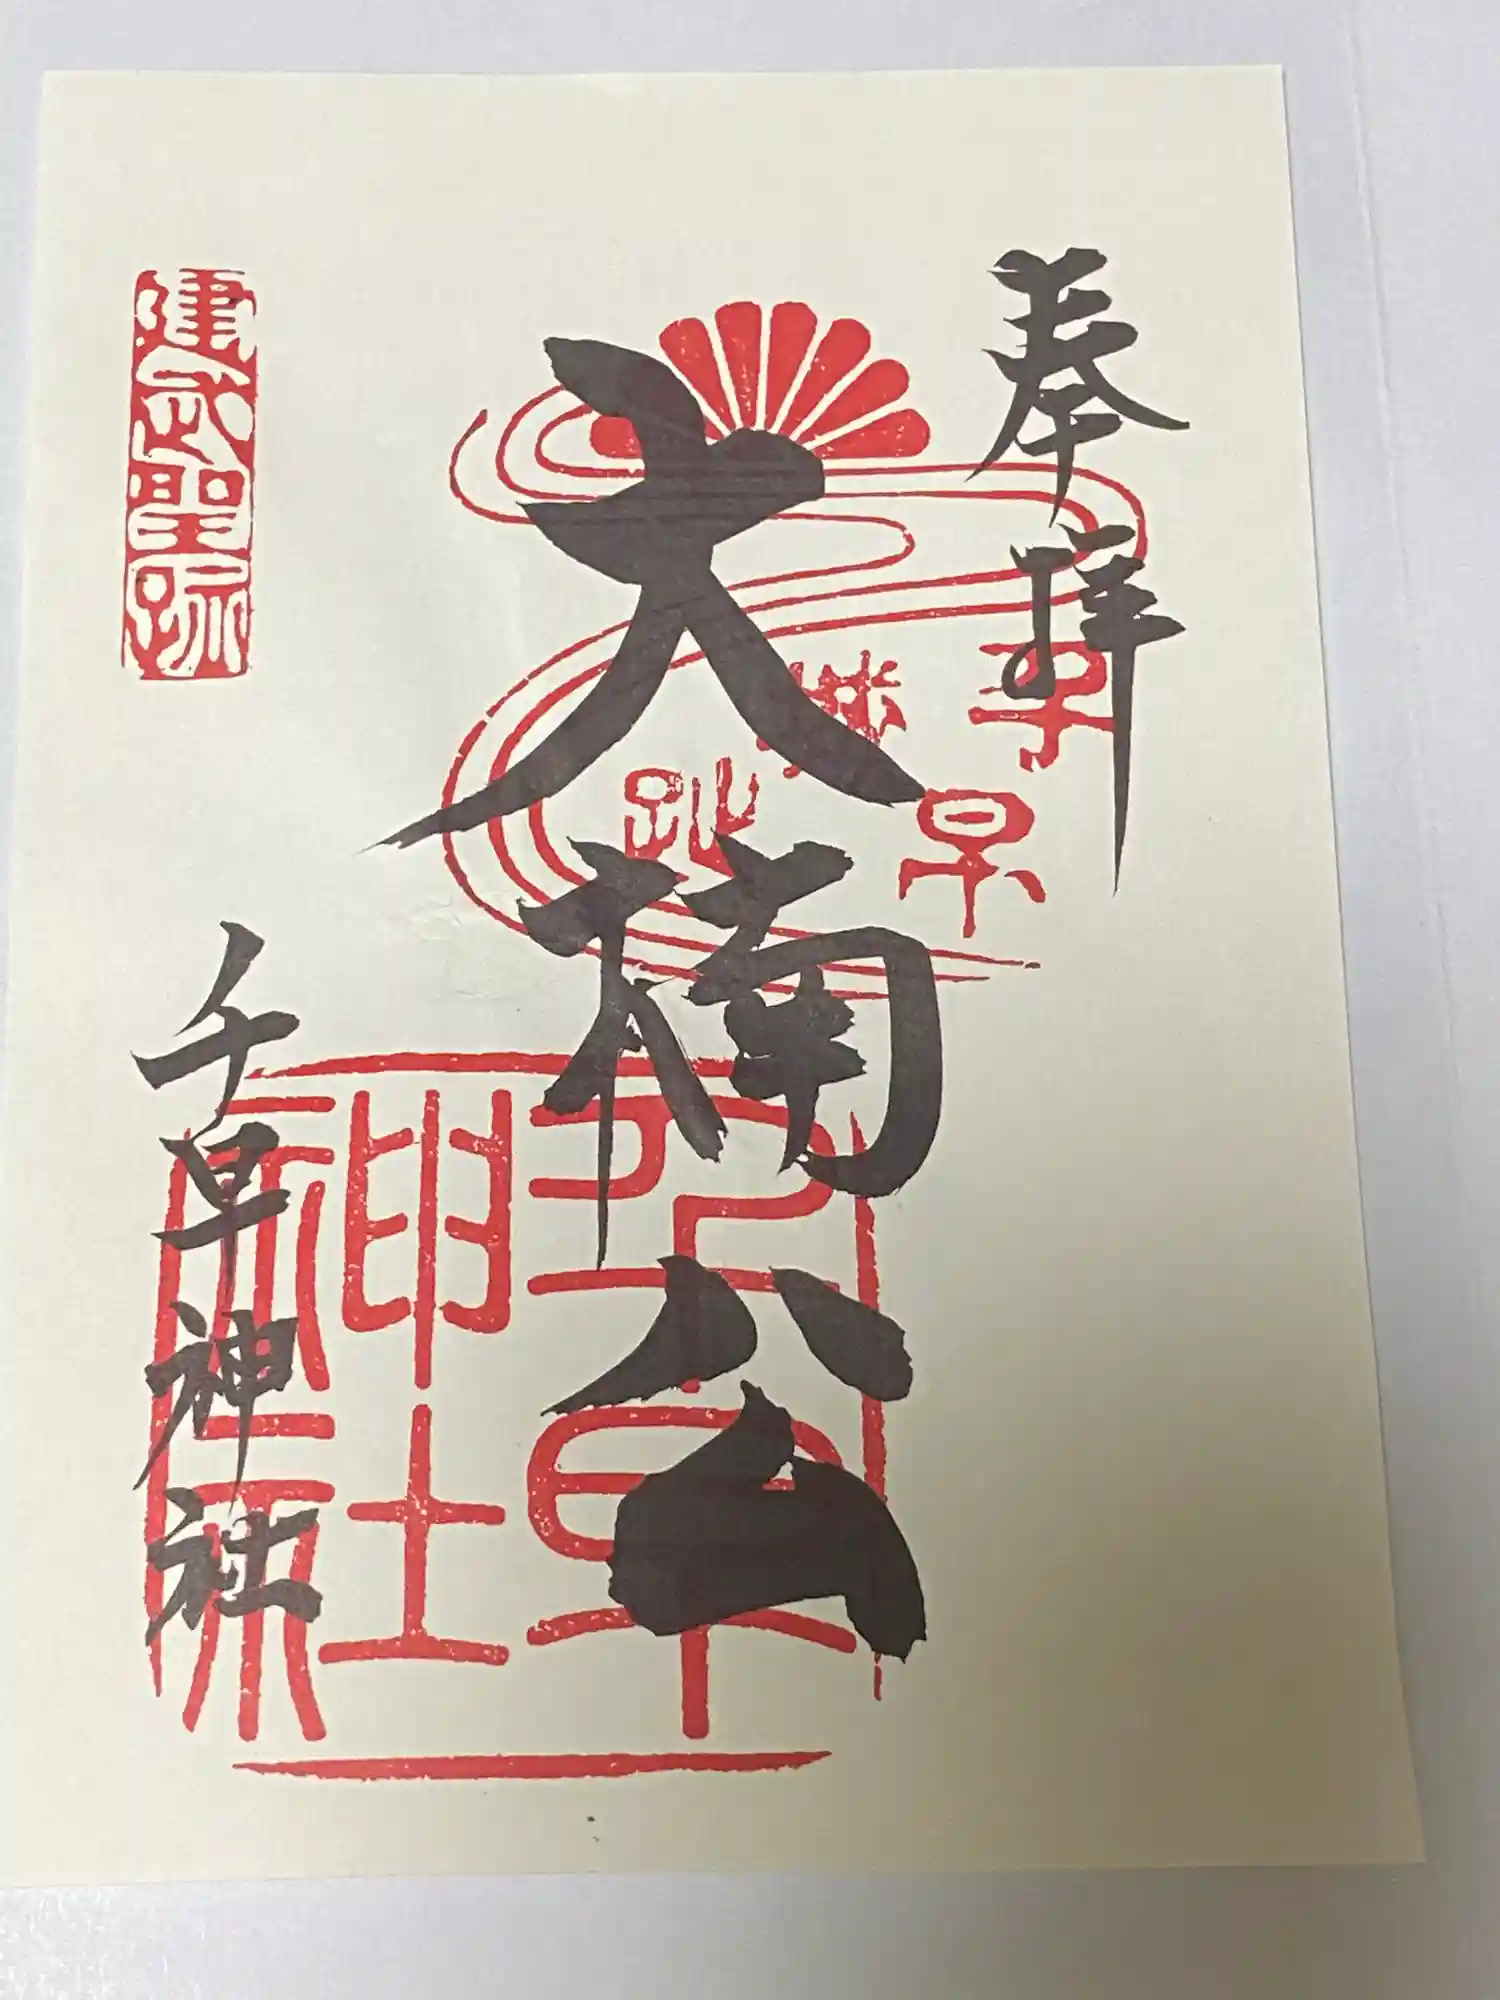 奉拝
大楠公
千早神社
建武聖跡
千早城址
千早神社